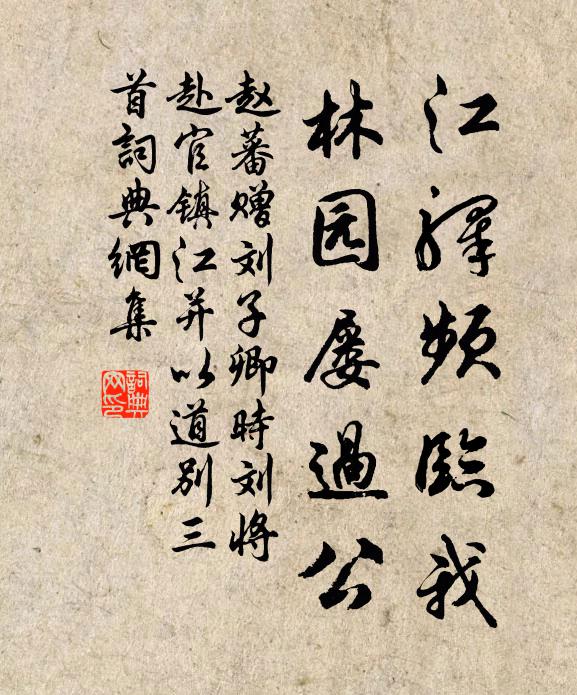 江驿频临我
林园屡過公
赵蕃赠刘子卿時刘将
赴官镇江并以道别三
首詞典網集
詞典網印